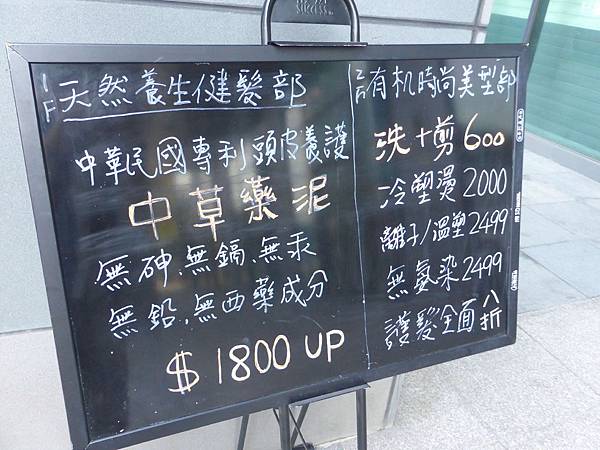 1F 天然養生健髮部
中華民國專利頭皮養護
中草藥泥
無砷、無鎘、無汞
無鉛、無西藥成分
$1800 UP
2F 有机時尚美型部
洗+剪 600
冷塑燙 2000
離子/溫塑 2499
無氨染 2499
護髮全面八折